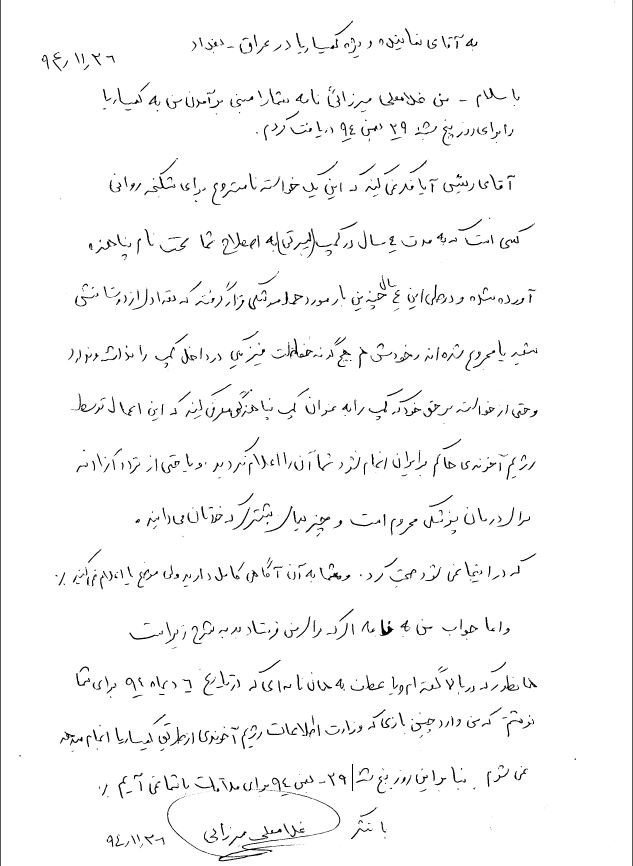 به آقای نماینده ویژه کمیساریا در عراق - بغداد
۹۴/۱۱/۲۶
با سلام - من غلامعلی میرزائی نامه شما را مبنی بر آمدن من به کمیساریا
را برای روز پنج شنبه ۲۹ بهمن ۹۴ دریافت کردم.
آقای رئیس آیا فکر نمی کنید که این یک خواسته نامشروع برای شکنجه روانی
کسی است که به مدت ۴ سال در کمپ (لیبرتی) به اصطلاح شما تحت نام پناهنده
آورده شده و در طی این ۴ سال چندین بار مورد حمله موشکی قرار گرفته که تعدادی از دوستانش
شهید یا مجروح شده اند و خودش هم هیچ گونه حفاظت فیزیکی در داخل کمپ را نداشته و ندارد
و حتی از خواسته بر حق خود که کمپ را به عنوان کمپ پناهندگی معرفی کنید که این اعمال توسط
رژیم آخوندی حاکم بر ایران انجام نشود شما آن را اعلام نکردید. و یا حتی از تردد آزادانه
برای درمان پزشکی محروم است و چیزهای بیشتری که خودتان می دانید.
که در اینجا نمی شود صحبت کرد. و شما به آن آگاهی کامل دارید ولی موضع یا اعلام نمی کنید.
و اما جواب من به نامه ای که برای من فرستادید به شرح زیر است
همانطور که در بالا گفته ام و با عطف به همان نامه ای که در تاریخ ۶ دیماه ۹۴ برای شما
نوشتم که من وارد چنین بازی که وزارت اطلاعات رژیم آخوندی از طریق کمیساریا انجام میدهد
نمی شوم. بنابراین روز پنج شنبه ۲۹ - بهمن ۹۴ برای ملاقات با شما نمی آیم.
با تشکر
غلامعلی میرزائی
۹۴/۱۱/۲۶